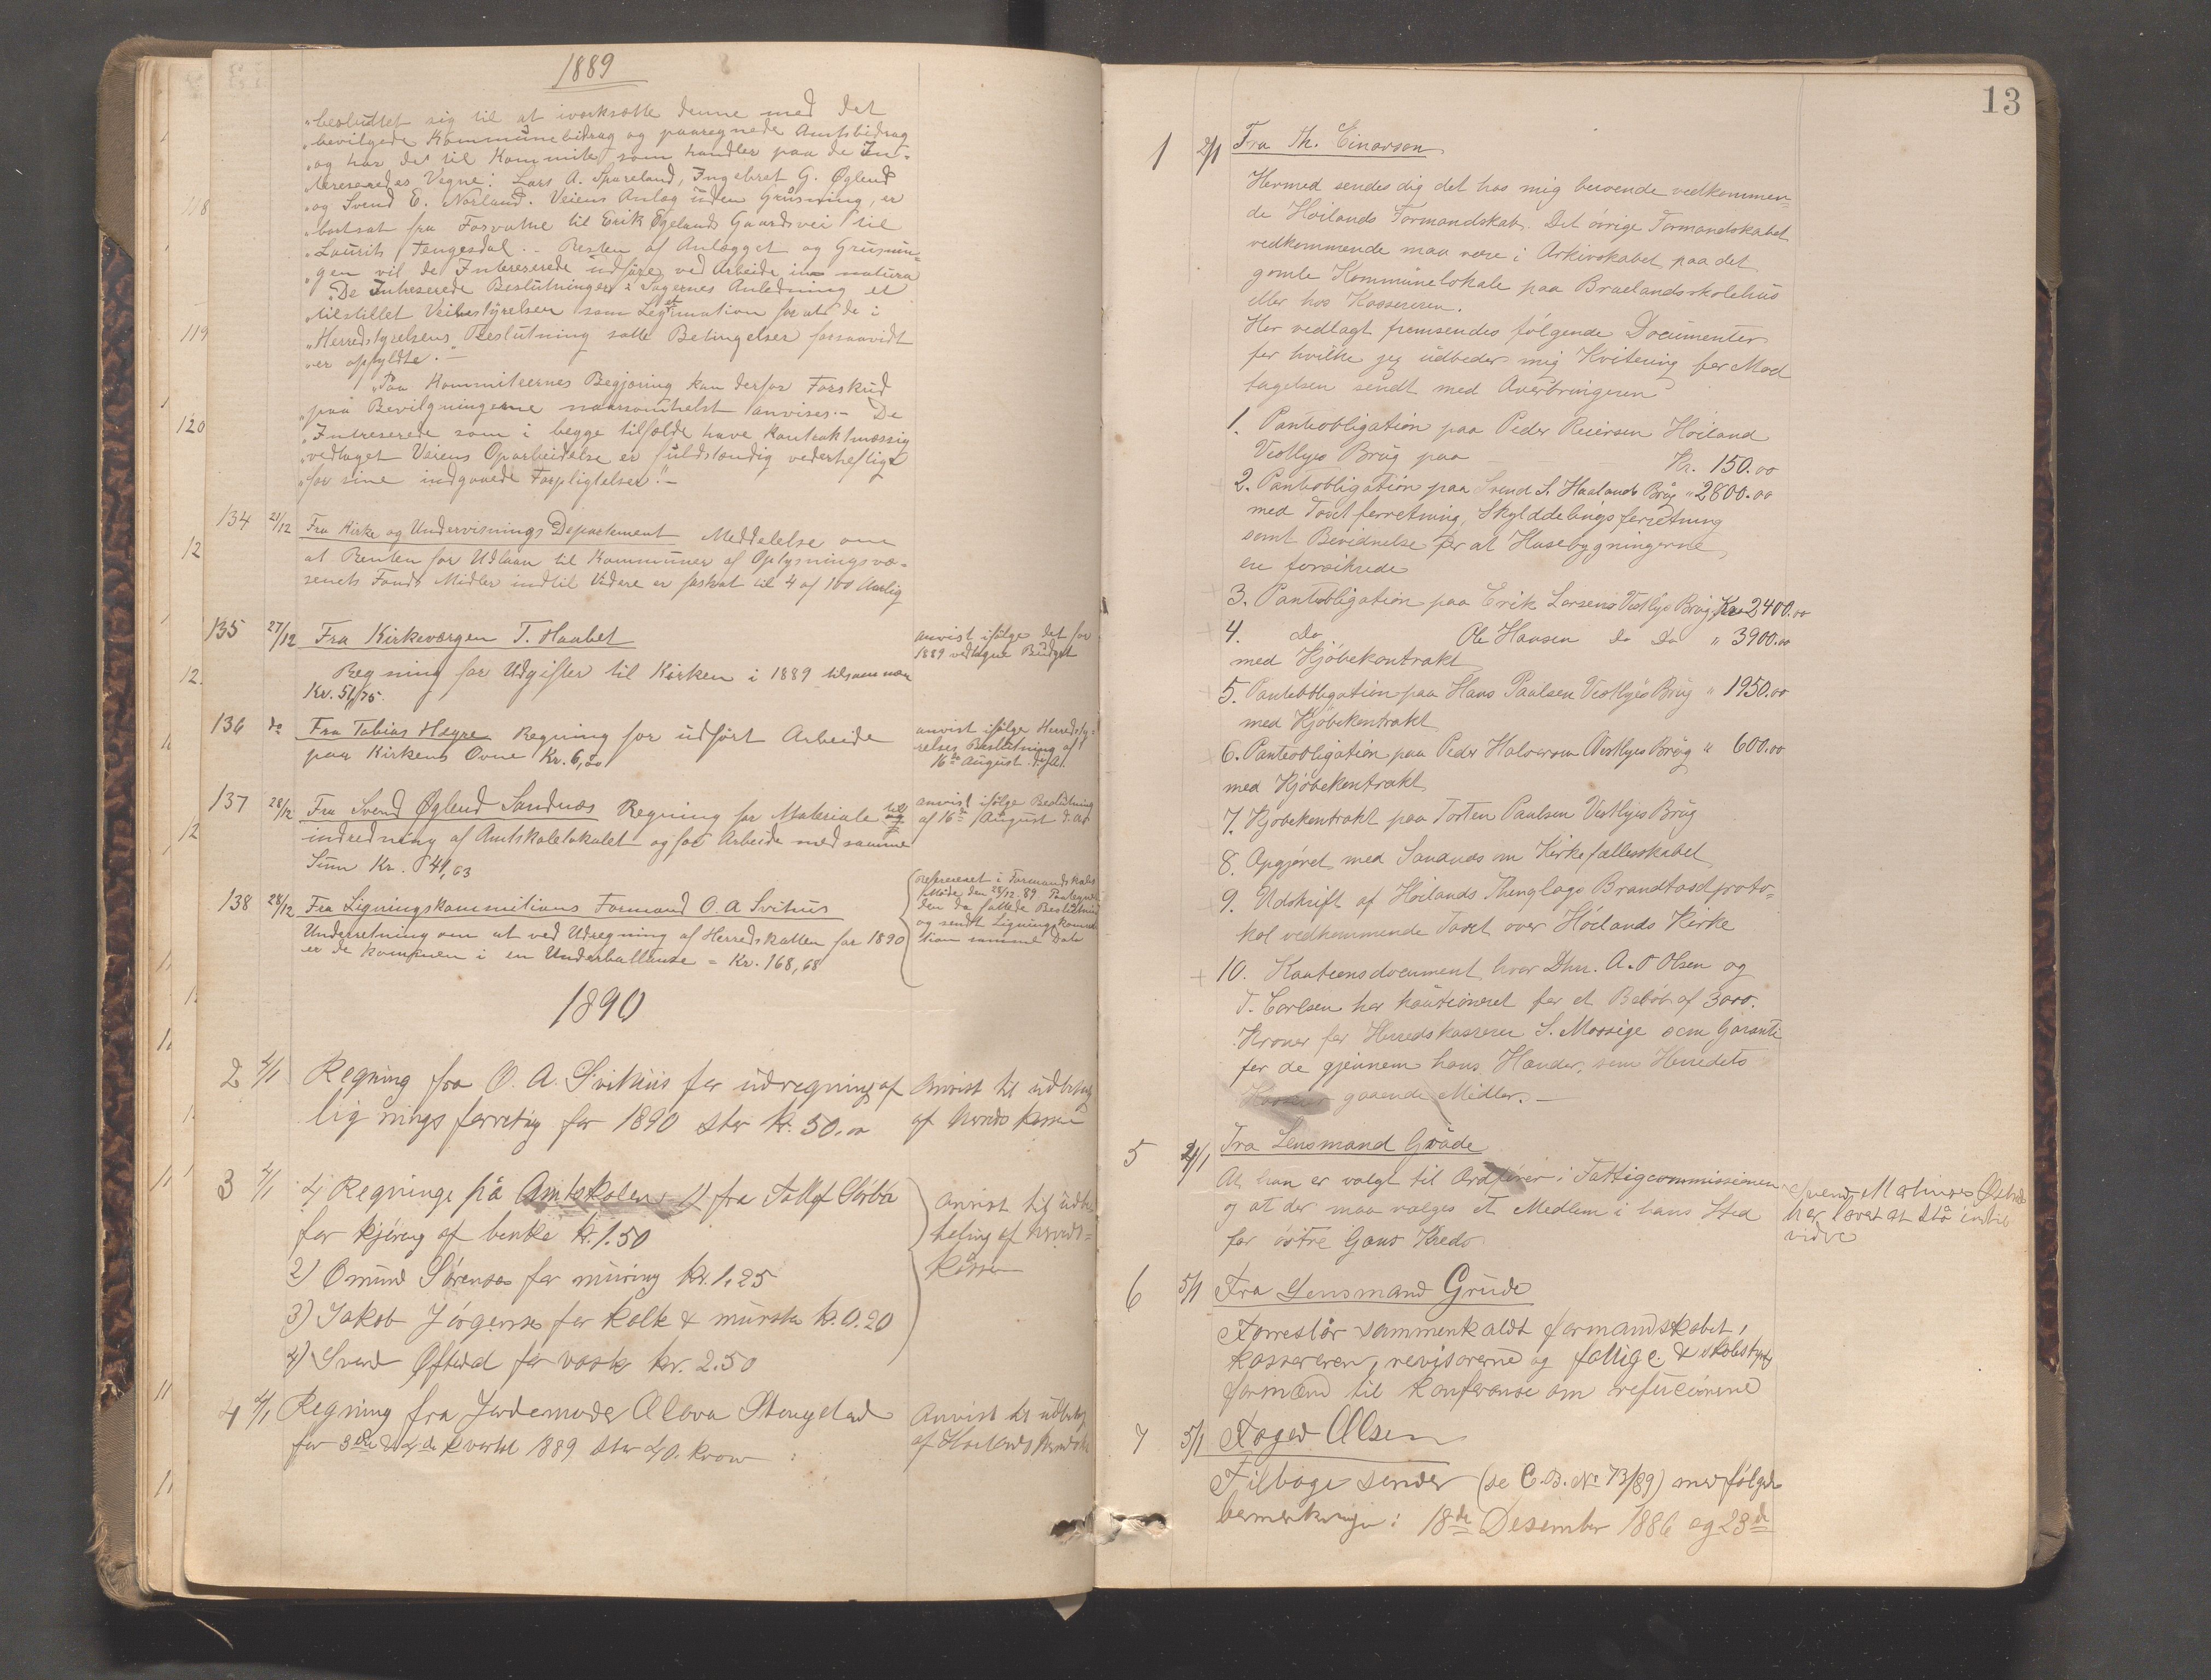 1889
"besluttet sig til at iverksætte denne med det
"bevilgede Kommunebidrag og paaregnede Amtsbidrag
"og har de til Kommite som handler paa de In-
"teresseredes Vegne: Lars A. Skjæreland, Ingebret G. Øglend
"og Svend E. Norland. Veiens Anlæg uden Grusning, er
"bortsat fra Forvathne til Erik Øgelands Gaardsvei til
"Laurits Tengesdal. - Resten af Anlægget og Grusnin-
"gen vil de Interesserede udføre ved Arbeide in natura
"De Intreserede Beslutninger i Sagernes Anledning er
"tilstillet Veibestyrelsen som Legitimation for at de i
"Herredstyrelsens Beslutning satte Betingelser forsaavidt
"er opfyldte."-
"Paa Kommiteernes Begjæring kan derfor Forskud
"paa Bevilgningerne naarsomhelst anvises. - De
"Intreserede som i begge tilfælde have kontraktmæssig
"vedtaget Veiens Oparbeidelse er fuldstændig vederheftige
"for sine indgaaede Forpligtelser."-
134 21/12 Fra Kirke og Undervisnings Departement Meddelelse om
at Renten for Udlaan til Kommuner af Oplysningsvæ-
senets Fonds Midler indtil Videre er fastsat til 4 af 100 Aarlig
135 27/12 Fra Kirkeværgen T. Haabet
Regning for Udgifter til Kirken i 1889 tilsammen
Kr. 51,75.
anvist ifølge det for
1889 vedtagne Budget
136 do Fra Tobias Høyre Regning for udført Arbeide
paa Kirkens Ovne Kr. 6,20
anvist ifølge Herredsty-
relses Beslutning af
16de August d. A.
137 28/12 Fra Svend Øglend Sandnæs Regning for Materiale til
indredning af Amtskolelokalet og for Arbeide med samme
Sum Kr. 41,63
anvist ifølge Beslutning
af 16de August d. Ar
138 28/12 Fra Ligningskommitions Formand O. A Svihus
Underretning om at ved Udregning af Herredskatten for 1890
er de kommen i en Underballanse = Kr. 168,68
refereret i Formandskabs
Møde den 28/12 89
den da fattede Beslutning
og sendt Ligningskommi
tion samme Dato
1890
2 2/1 Regning fra O. A. Svihus for udregning af
lignings forretnig for 1890 stor kr. 50.00
Anvist til udbetalg
af herreds kassen
3 2/1 4 Regninge på Amtskolen 1) fra Tollef Sørbø
for kjöring af benke kr. 1.50
2) Omund Sörensen for muring kr. 1.25
3) Jakob Jörgensen for kalk & mursten kr. 0.20
4) Svend Øftedal for vask kr. 2.50
Anvist til udbe-
taling af herreds-
kassen
4 2/1 Regning fra Jordemoder Olava Stengelad
for 3die & 4de kvartal 1889 stor 40. kroner
Anvist til udbetalg
af Hoilands herredsk
13
1 2/1 Fra Th. Einarson
Hermed sendes dig det hos mig beroende vedkommen-
de Höilands Formandskab. Det övrige Formandskabet
vedkommende maa være i Arkivskabet paa det
gamle Kommunelokale paa Bruelandsskolehus
eller hos Kassereren.
Her vedlagt fremsendes fölgende Documenter
for hvilke jeg udbeder mig Kvitering for Mod
tagelsen sendt med Overbringeren
1. Panteobligation paa Peder Reiersen Höiland
Vestlyes Brug paa Kr. 150.00
2. Panteobligation paa Svend S. Haalands Brug " 2800.00
med Taxtforretning, Skylddelingsforretning
samt Bevidnelse for at Husebygningerne
ere forsikrede
3. Panteobligation paa Erik Larsens Vestlye Brug Kr 2400.00
4. do Ole Hansen do do " 3900.00
med Kjöbekontrakt
5. Panteobligation paa Hans Paulsen Vestlyes Brug " 1950.00
med Kjöbekontrakt
6. Panteobligation paa Peder Halvorsen Vestlyes Brug " 600.00
med Kjöbekontrakt
7. Kjöbekontrakt paa Torsten Paulsen Vestlyes Brug
8. Opgjöret med Sandnæs om Kirkefællesskabet
9. Udskrift af Höilands Thinglags Brandtaxtproto-
kol vedkommende Taxt over Höilands Kirke
10. Kautionsdocument hvor Dhrr. A. O Olsen og
T. Carlsen har kautioneret for et Belöb af 3000.
Kroner for Herredskasserer S. Mossige som Garanti
for de gjennem hans Hænder, som Herredets
Kasserer gaaende Midler. -
5 2/1 Fra Lensmand Grude
At han er valgt til Ordförer i Fattigcommissionen
og at der maa vælges et Medlem i hans Sted
for östre Gans Kreds
Svend Matinas Øftedal
har lovet at stå indtil
videre
6 5/1 Fra Lensmand Grude
Forreslår sammenkaldt formandskabet,
kassereren, revisorerne og fattig & skolestyrets
formænd til konferanse om
7 5/1 Foged Olsen
Tilbage sender (se C.B. No 73/89) med følgende
bemerkninger: 18de Desember 1886 og 23de